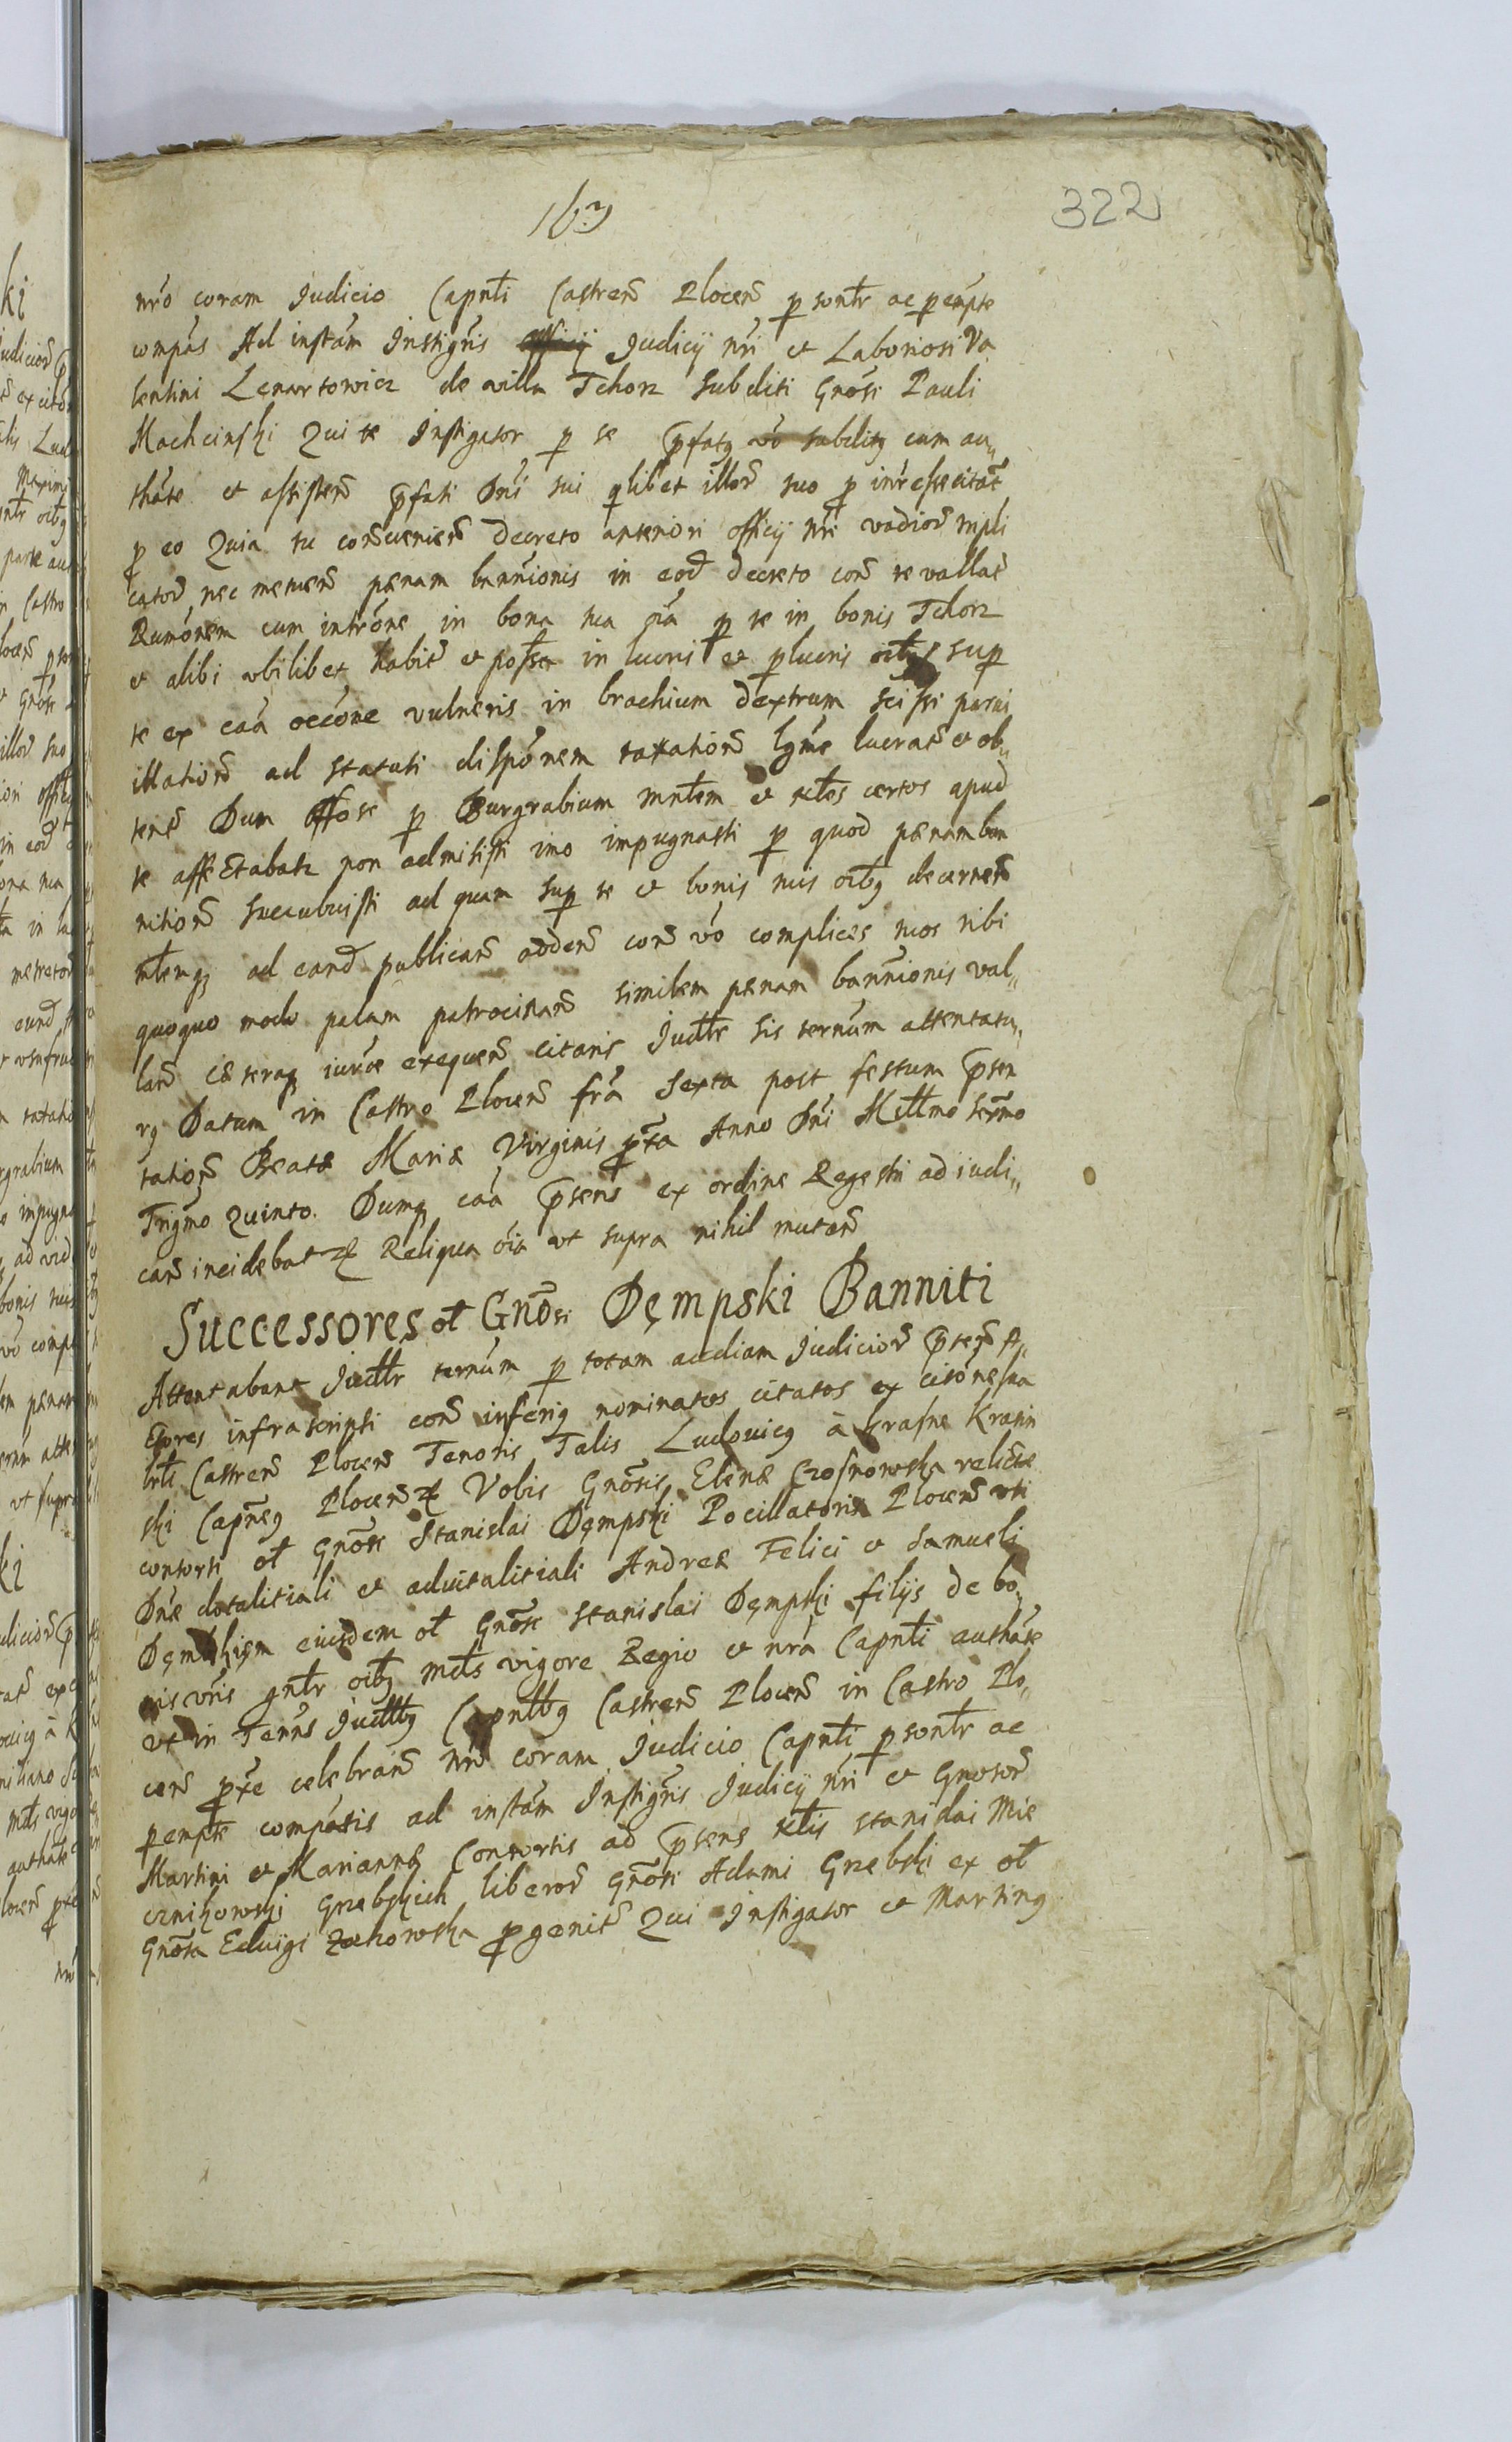 163
322
nr̃o coram Judicio Capnt̃i Castreñ Ploceñ p̱sontr̃ ac p̱empte
compãs Ad instãm Instigr̃is Judicij nr̃i et Laboriosi Va
lentini Lenartowicz de villa Tchorz Subditi Gnõsi Pauli
Machcinski Qui te Instigator p̱ se p̃fatq vo subditq cum au„
thãte et assisteñ p̃fati Dnĩ sui q̱libet illor̃ suo p̱ inr̃esse citat̃
p̱ eo Quia tu conr̃aueniẽn Decreto anteriori officij nr̃i vadior̃ mpli
cator̃ nec metueñ pænam bannĩonis in eod̃ decreto coñ te vallat̃
Rumõnem cum intrõne in bona tua nã p̱ te in bonis Tchorz
et alibi vbilibet habit̃ et possa in lucri et p̱lucris oĩbq sup̱
te ex caã occõne vulneris in brachium dextrum scissi parui
illatioñ ad statuti dispõnem taxatioñ lgme lucrat̃ et ob„
tent̃ Dum Offose p̱ Burgrabium mnt̃em et sctes certos apud
te affectabatr non admisisti imo impugnasti p̱ quod pænam ban
nitioñ Succubuisti ad quam sup̱ te et bonis tuis oĩbq decerneñ
mt̃emq ad eand̃ publicañ addeñ coñ võ complices tuos tibi
quoquo modo palam patrocinañ similem pænam bannĩonis val„
lañ cæteraq iurẽ exequeñ citaris Judlr̃ sis ternũm attentatu„
rq Datum in Castro Ploceñ frã Sexta post festum p̃sen
tatioñ Beatæ Mariæ Virginis p̱xa Anno Dnĩ Millmo sexmo
Trigmo Quinto. Dumq caã p̃sens ex ordine Regestri ad iudi„
cañ incidebat &c Reliqua oĩa vt supra nihil mutañ
Successores ol̃ Gnõsi Dęmpski Banniti
Attentabant Judlr̃ ternũm p̱ totam audiam Judicior̃ p̃señ A„
ctores infrascripti coñ inferiq nominatos citatos ex citõne sua
lrt̃i Castreñ Ploceñ Tenoris Talis Ludouicq à Krasne Krasin
ski Capnẽq Ploceñ &c Vobis Gnõsis Elenæ Czosnowska relictæ
consorti ol̃ Gnõsi Stanislai Dęmpski Pocillatoris Ploceñ vti
Dnæ dotalitiali et aduitalitiali Andreæ Felici et Samueli
Dęmpskięm eiusdem ol̃ Gnõsi Stanislai Dęmpski filijs de bo„
nis vrĩs gntr̃ oĩbq mdt̃s vigore Regio et nrã Capnt̃i authãte
vt in Ternĩs Judllbq Capntlbq Castreñ Ploceñ in Castro Plo„
ceñ p̱xe celebrañ nrõ coram Judicio Capnt̃i p̱sontr̃ ac
p̱empte compãtis ad instãm Instigr̃is Judicij nr̃i et Gnosor̃
Martini et Mariannæ Consortis ad p̃sens sctis Stanislai Mie
cznikowski Grzebskich liberor̃ Gnõsi Adami Grzebski ex ol̃
Gnõsa Eduigi Zochowska p̱genit̃ Qui Instigator et Martinq